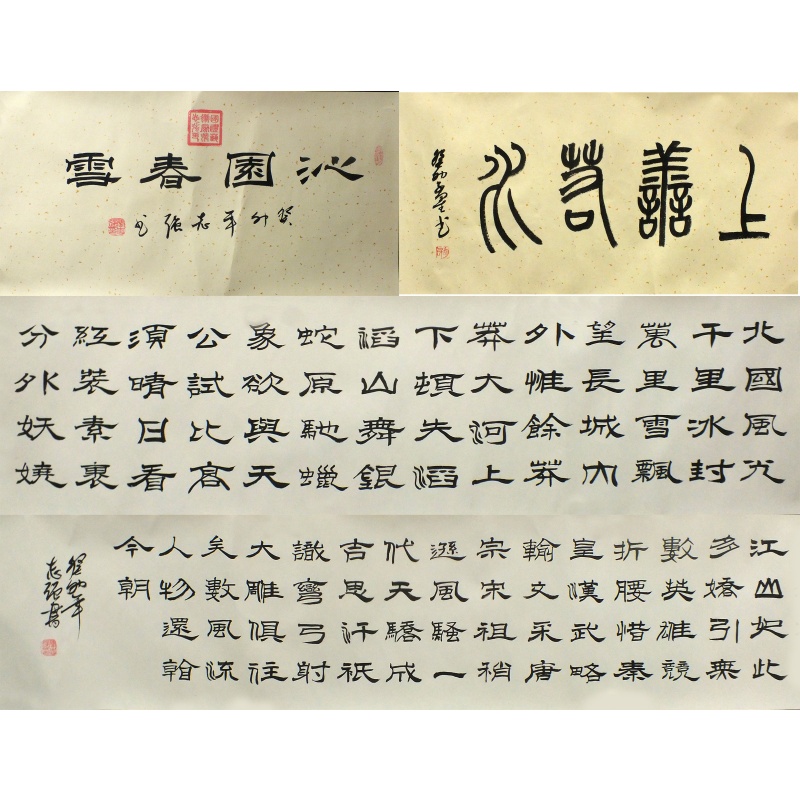 沁園春雪
癸卯年志強書
上善若水
北國風光
千里冰封
萬里雪飄
望長城內
外惟餘莽
莽大河上
下頓失滔
滔山舞銀
蛇原馳蠟
象欲與天
公試比高
須晴日看
紅裝素裹
分外妖嬈
江山如此
多嬌引無
數英雄競
折腰惜秦
皇漢武略
輸文采唐
宗宋祖稍
遜風騷一
代天驕成
吉思汗祇
識彎弓射
大雕俱往
矣數風流
人物還看
今朝
癸卯年
志強書